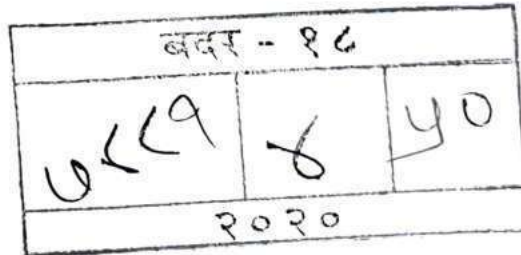 बदर - १८
७८८१ ४ ५०
२०२०